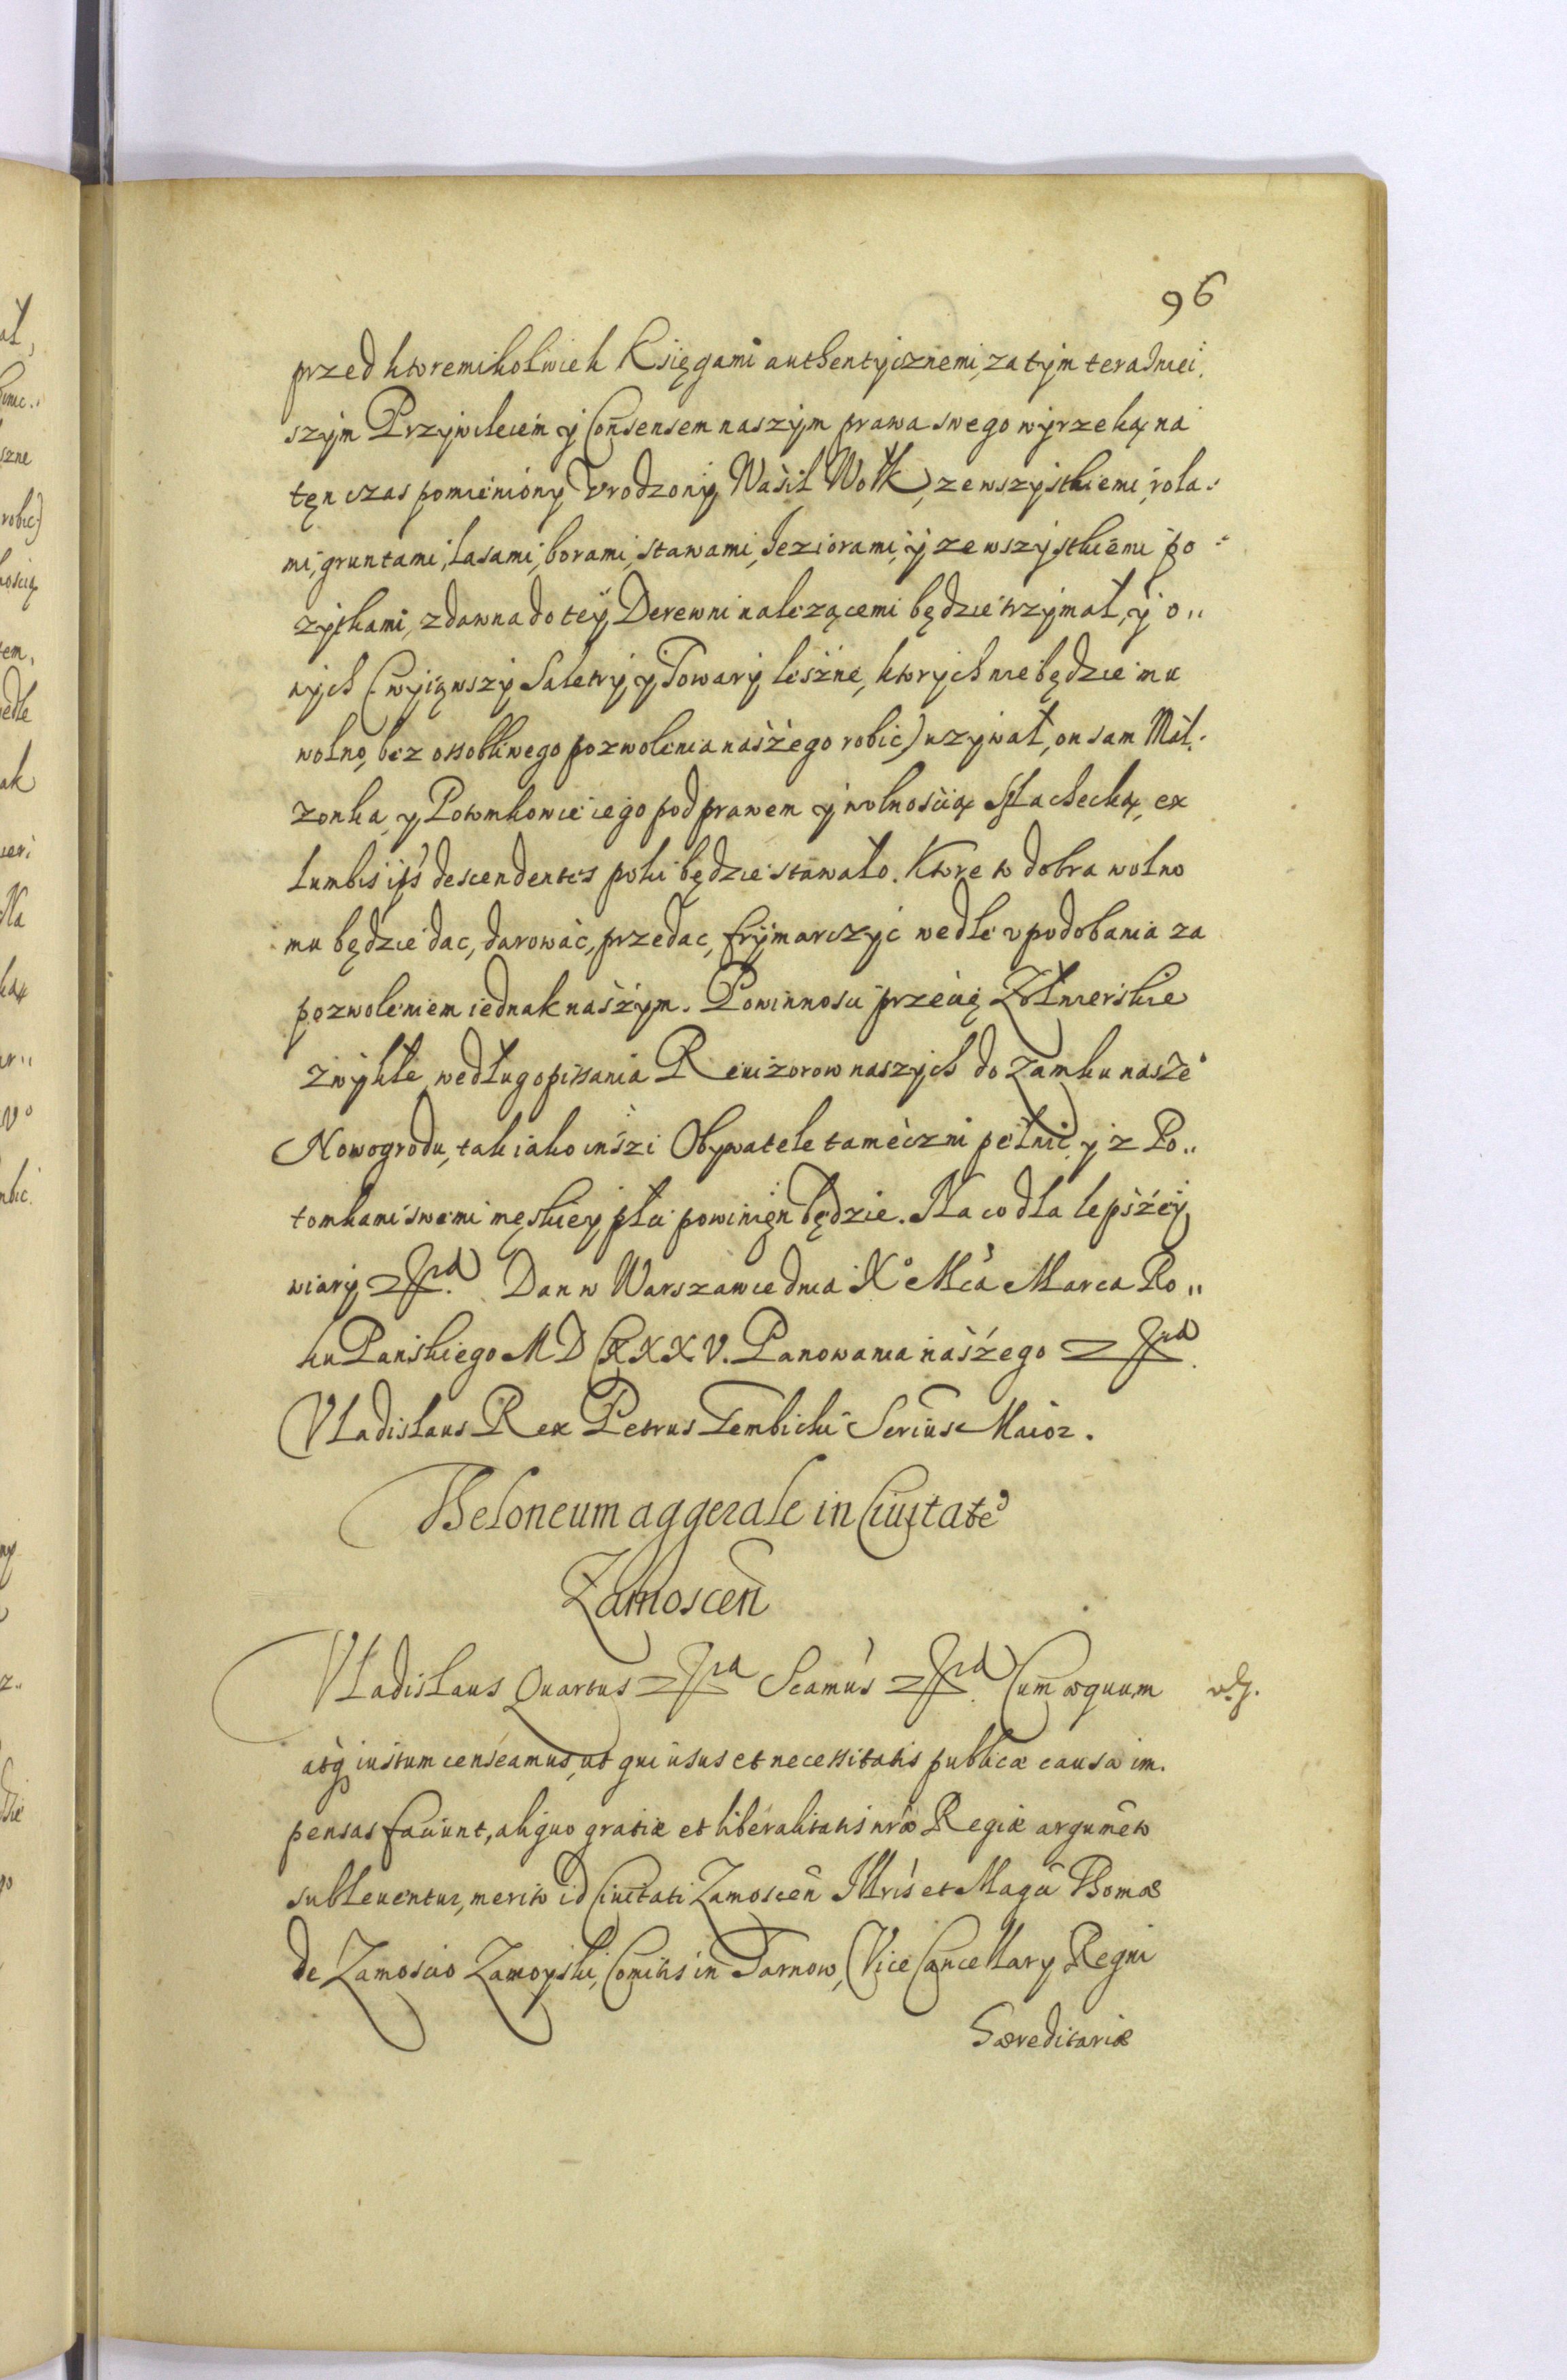 96
przed ktoremikolwiek Księgami authentycznemi, zatym terazniei.
szym Przywileiem y Consensem naszym prawa swego wyrzeką na
tęn czas pomieniony Vrodzony Wasil Wołk, ze wszystkiemi, rola:
mi, gruntami, Lasami, borami, stawami, Jeziorami, y ze wszystkiemi po:
zytkami, zdawna do tey Derewni nalezącemi będzie trzymał, y o„
nych (wyiąwszy Saletry, y Towary leśzne, ktorych nie będzie mu
wolno, bez ossobliwego pozwolenia naszego robic) uzywał, on sam Mał:
zonka, y Potomkowie iego pod prawem y wolnoscią Slachecką, ex
lumbis ips' descendentes poki będzie stawało. Ktore to dobra wolno
mu będzie dac, darowac, przedac, frymarczyc wedle vpodobania za
pozwoleniem iednak naszym. Powinnosci przecię Zołnierskie
zwykłe według opissania Reuizorow naszych do Zamku nasze°
Nowogrodu, tak iako inszi Obywatele tameczni pełnić y z Po„
tomkami swemi męskiey płci powinięn będzie. Na co dla lepszey
wiary etc. Dan w Warszawie dnia X° Mca Marca Ro„
ku Panskiego MDCXXXV. Panowania naszego etc.
Vladislaus Rex Petrus Gembicki Secrius Maior.
Theloneum aggerale in Ciuitate
Zamoscen
Vladislaus Quartus etc. Scamus etc. Cum æquum
atq iustum censeamus, ut qui usus et necessitatis publicæ causa im.
pensas faciunt, aliquo gratiæ et liberalitatis nræ Regiæ argumeto
subleuentur, merito id Ciuitati Zamoscen Illris et Magci Thomæ
de Zamoscio Zamoyski, Comitis in Tarnow, Vice Cancellary Regni
Hæreditariæ